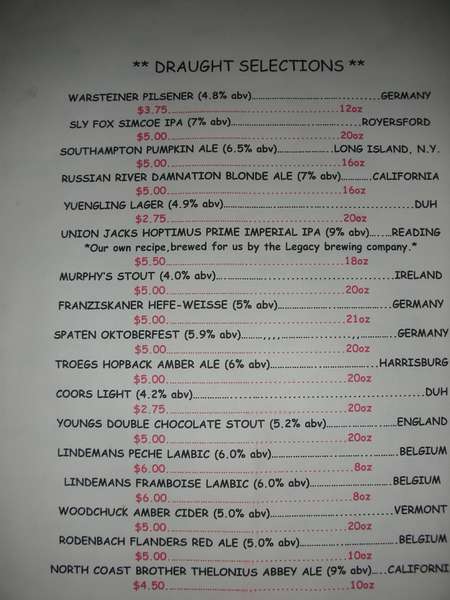 ** DRAUGHT SELECTIONS **
WARSTEINER PILSENER (4.8% abv)..............................GERMANY
$3.75..............................12oz
SLY FOX SIMCOE IPA (7% abv)..............................ROYERSFORD
$5.00..............................20oz
SOUTHAMPTON PUMPKIN ALE (6.5% abv)....................LONG ISLAND, N.Y.
$5.00..............................16oz
RUSSIAN RIVER DAMNATION BLONDE ALE (7% abv)............CALIFORNIA
$5.00..............................16oz
YUENGLING LAGER (4.9% abv)..............................DUH
$2.75..............................20oz
UNION JACKS HOPTIMUS PRIME IMPERIAL IPA (9% abv)......READING
*Our own recipe,brewed for us by the Legacy brewing company.*
$5.50..............................18oz
MURPHY'S STOUT (4.0% abv)..............................IRELAND
$5.00..............................20oz
FRANZISKANER HEFE-WEISSE (5% abv)..............................GERMANY
$5.00..............................21oz
SPATEN OKTOBERFEST (5.9% abv)........,,,,..............,,..........GERMANY
$5.00..............................20oz
TROEGS HOPBACK AMBER ALE (6% abv)..............................HARRISBURG
$5.00..............................20oz
COORS LIGHT (4.2% abv)..............................DUH
$2.75..............................20oz
YOUNGS DOUBLE CHOCOLATE STOUT (5.2% abv)....................ENGLAND
$5.00..............................20oz
LINDEMANS PECHE LAMBIC (6.0% abv)..............................BELGIUM
$6.00..............................8oz
LINDEMANS FRAMBOISE LAMBIC (6.0% abv)....................BELGIUM
$6.00..............................8oz
WOODCHUCK AMBER CIDER (5.0% abv)..............................VERMONT
$5.00..............................20oz
RODENBACH FLANDERS RED ALE (5.0% abv)....................BELGIUM
$5.00..............................10oz
NORTH COAST BROTHER THELONIUS ABBEY ALE (9% abv).....CALIFORNI
$4.50..............................10oz